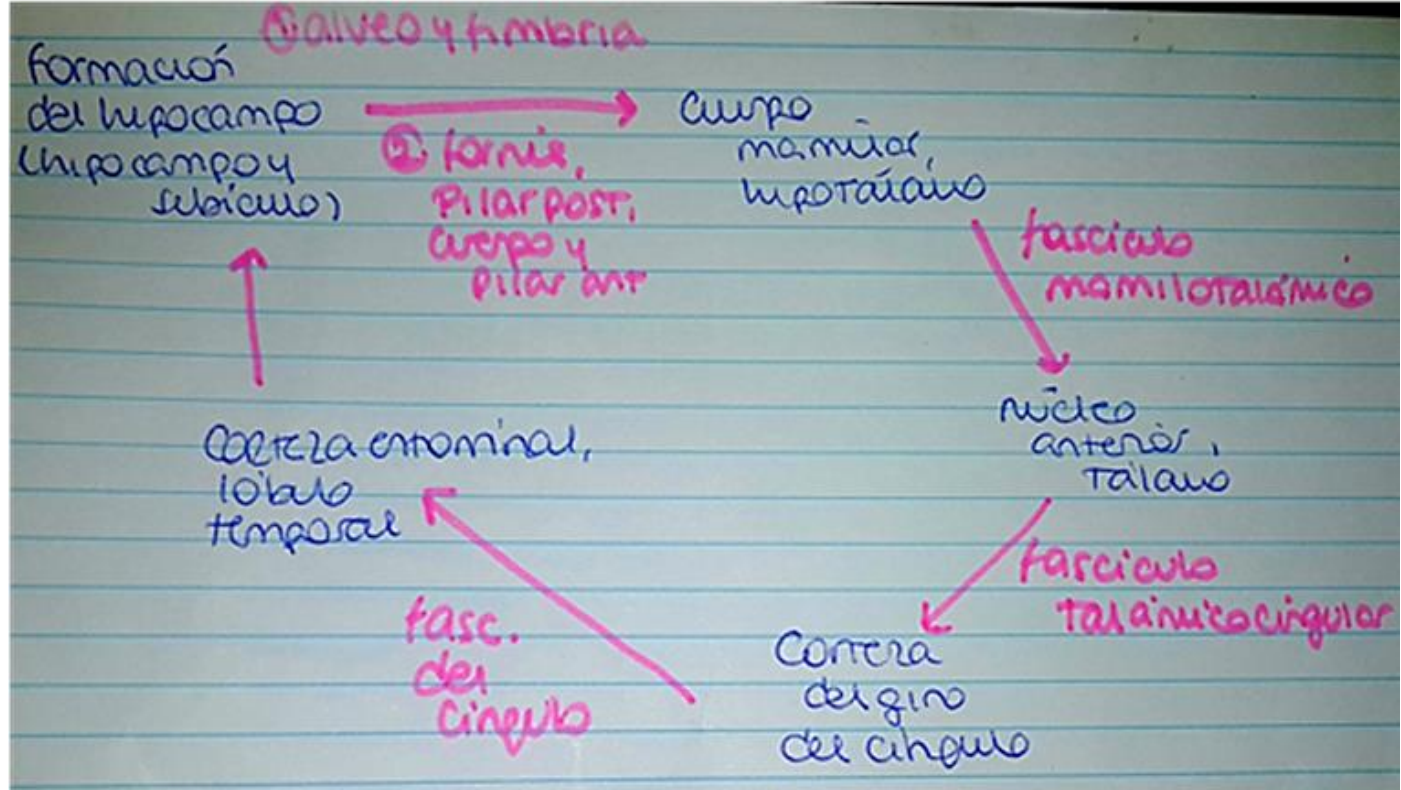 ① alveo y fimbria
formación
del hipocampo
(hipocampo y
subículo)
② fornix,
Pilar post,
cuerpo y
pilar ant
Cuerpo
mamilar,
hipotálamo
fascículo
mamilotalámico
núcleo
anterior,
Tálamo
fascículo
talámicocingular
Corteza
del giro
del cíngulo
fasc.
del
cíngulo
Corteza entorrinal,
lóbulo
temporal